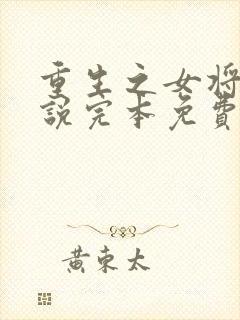 重生之女将
說完本免費
黄東太